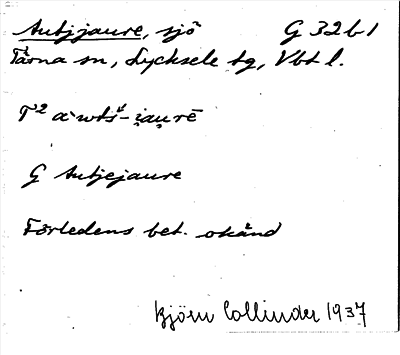 Autjjaure, sjö G 32 b 1
Tärna sn, Lycksele tg, Vbt l.
G Autjejaure
Förledens bet. okänd
Björn Collinder 1937